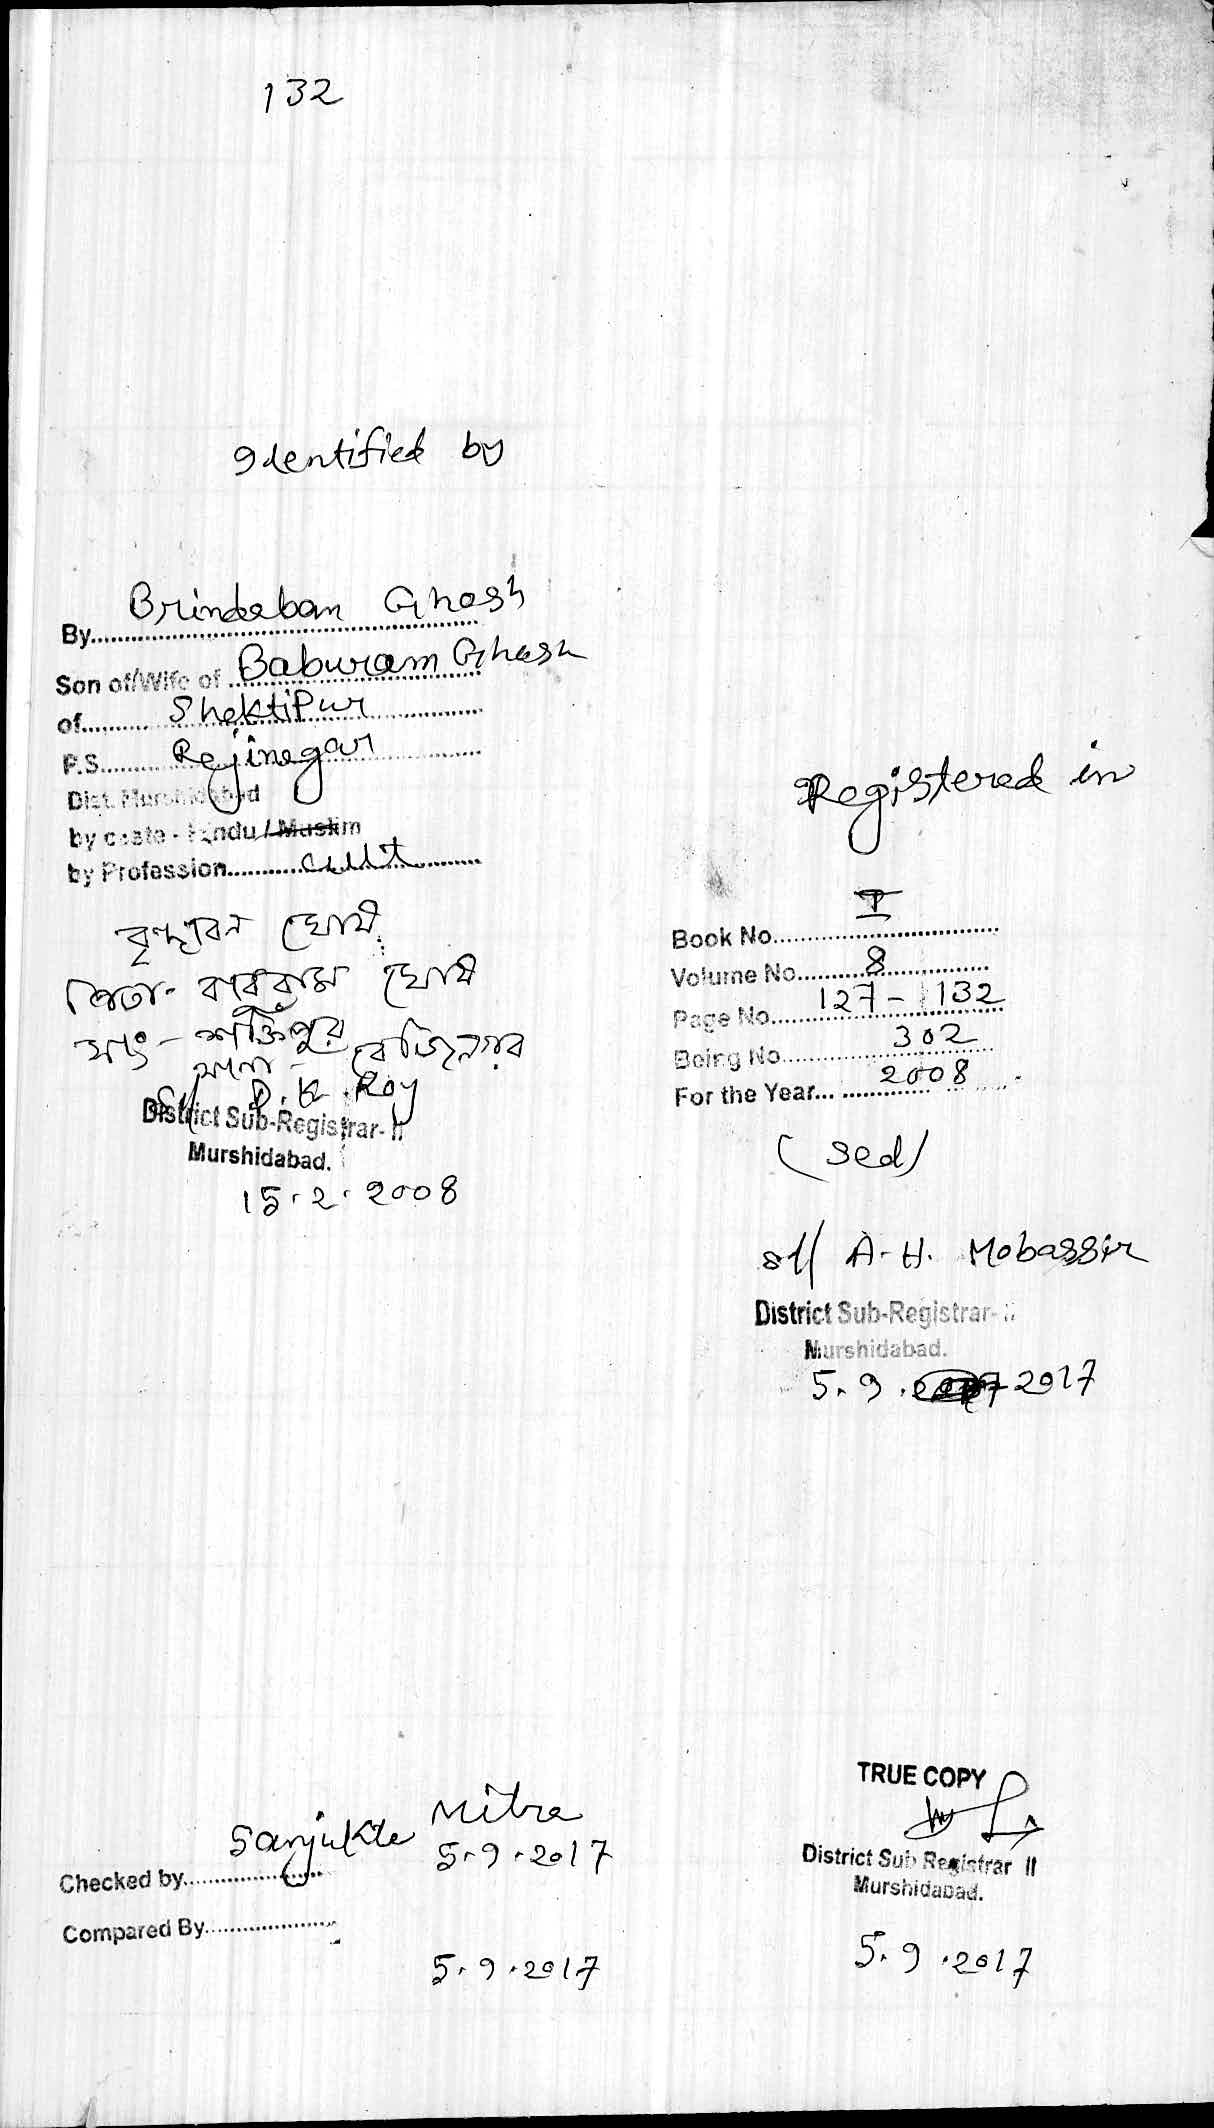 132
Identified by
By Brindaban Ghosh
Son of/Wife of Baburam Ghosh
of Shaktipur
P.S. Rejinagar
Dist. Murshidabad
by caste - Hindu / Muslim
by Profession cult
বৃন্দাবন ঘোষ
পিতা- বাবুরাম ঘোষ
সাং - শক্তিপুর
থানা - রেজিনগর
Sd/ D. K. Roy
District Sub-Registrar-II
Murshidabad.
15.2.2008
Registered in
Book No. I
Volume No. 8
Page No. 127 - 132
Being No. 302
For the Year... 2008
(Sed/
Sd/ A. H. Mobassir
District Sub-Registrar-II
Murshidabad.
5.9. 2017
Sanjukta Mitra
Checked by 5.9.2017
Compared By
5.9.2017
TRUE COPY
District Sub Registrar II
Murshidabad.
5.9.2017